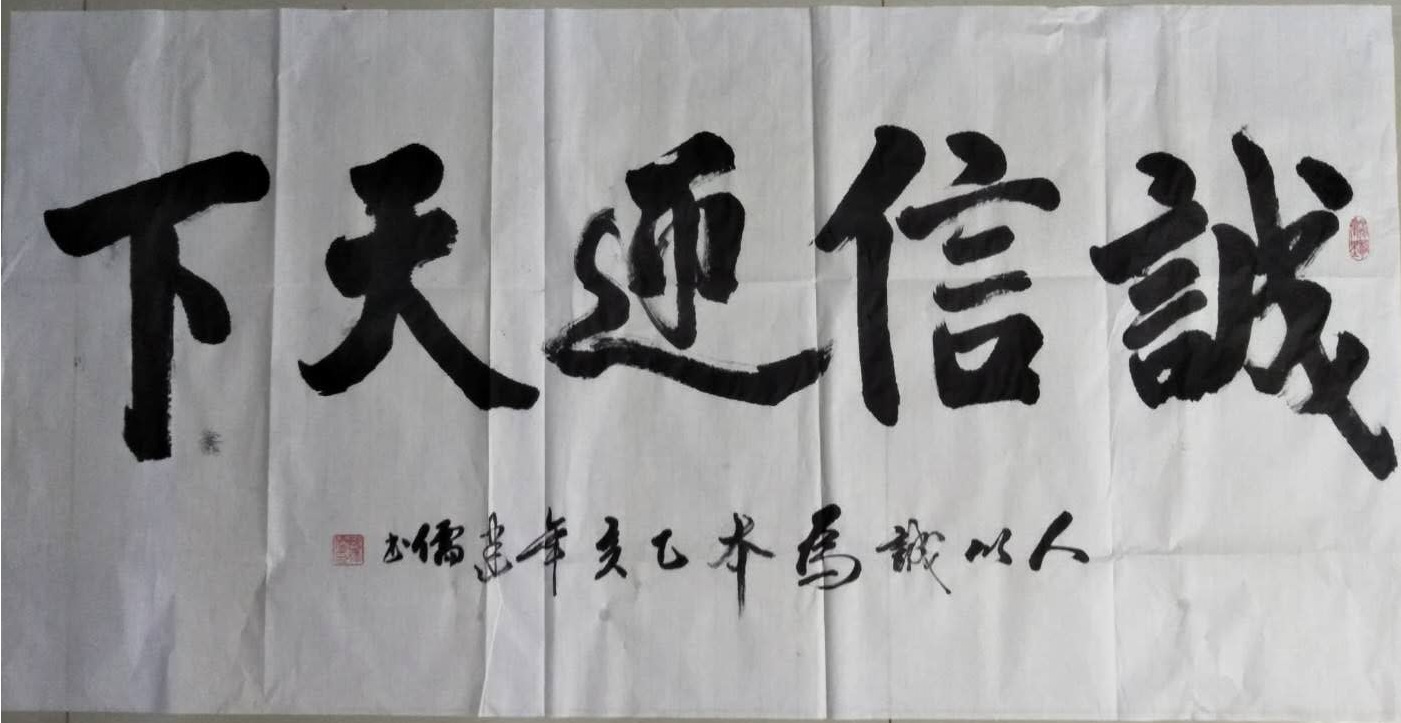 誠信通天下
人以誠為本己亥年建儒书